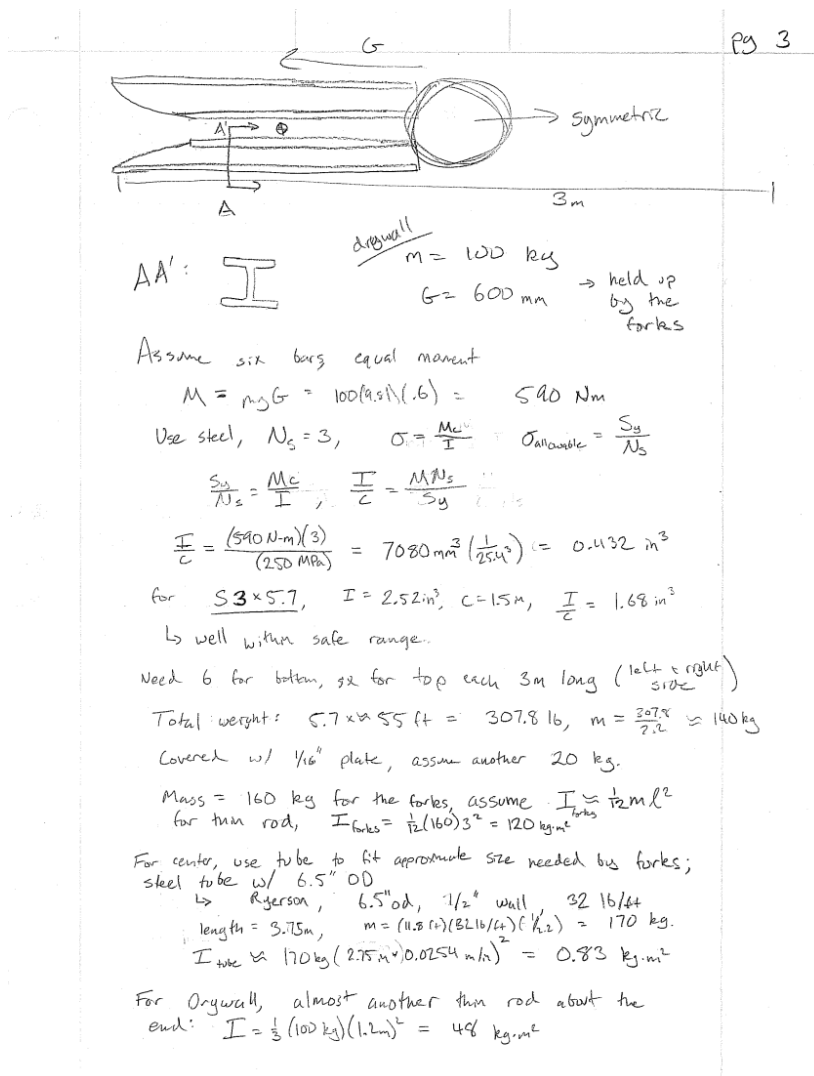 G
pg 3
A'
Symmetric
A
3m
AA':
drywall
m = 100 kg
G = 600 mm → held up
by the
forks
Assume six bars, equal moment
M = mgG = 100(9.81)(.6) = 590 Nm
Use steel, Ns = 3, σ = Mc/I σallowable = Sy/Ns
Sy/Ns = Mc/I , I/c = MNs/Sy
I/c = (590 N-m)(3)/(250 MPa) = 7080 mm³ (1/25.4³) = 0.432 in³
for S3×5.7, I = 2.52in³, c=1.5 in, I/c = 1.68 in³
↳ well within safe range.
Need 6 for bottom, six for top each 3m long (left & right side)
Total weight: 5.7 × ≈ 55 ft = 307.8 lb, m = 307.8/2.2 ≈ 140 kg
Covered w/ 1/16" plate, assume another 20 kg.
Mass = 160 kg for the forks, assume Iforks ≈ 1/12 ml²
for thin rod, Iforks = 1/12(160)3² = 120 kg·m²
For center, use tube to fit approximate size needed by forks;
steel tube w/ 6.5" OD
↳ Ryerson, 6.5"od, 1/2" wall, 32 lb/ft
length = 3.75m, m = (11.8 ft)(32 lb/ft)(1/2.2) = 170 kg.
Itube ≈ 170 kg (2.75 in · 0.0254 m/in)² = 0.83 kg·m²
For Drywall, almost another thin rod about the
end: I = 1/3 (100 kg)(1.2m)² = 48 kg·m²